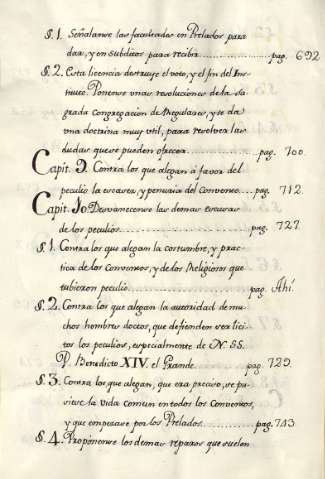 §. 1. Señalanse las facultades en Prelados para
dar, y en subditos para recibir........pag. 692
§. 2. Esta licencia destruye el voto, y el fin del Ins-
tituto. Ponense unas resoluciones de la Sa-
grada Congregacion de Regulares, y se da
una doctrina muy util, para resolver las
dudas que se pueden ofrecer........pag. 700
Capit. 9. Contra los que alegan à favor del
peculio la escasez, y penuria del Convento...pag. 712.
Capit. 10. Desvanecense las demas escusas
de los peculios........pag. 727
§. 1. Contra los que alegan la costumbre, y prac-
tica de los Conventos, y de los Religiosos que
tubieron peculio........pag. Ahi
§. 2. Contra los que alegan la autoridad de mu-
chos hombres doctos, que defienden ser lici-
tos los peculios, especialmente de N. SS.
P. Benedicto XIV. el Grande........pag. 729.
§. 3. Contra los que alegan, que era preciso, se pu-
siese la vida comun en todos los Conventos,
y que empezase por los Prelados........pag. 743
§. 4. Proponense los demas reparos que suelen